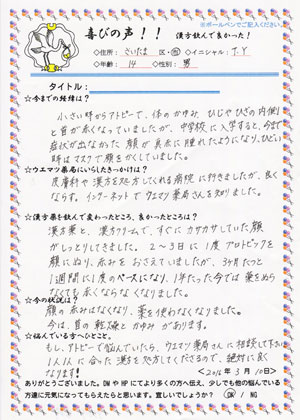 ※ボールペンでご記入ください。
喜びの声！！ 漢方飲んで良かった！
◇住所: さいたま 区・市 ◇イニシャル: T.Y
◇年齢: 14 ◇性別: 男
タイトル：
☆今までの経緯は？
小さい時からアトピーで、体のかゆみ、ひじやひざの内側
と首が赤くなっていましたが、中学校に入学すると、今まで
症状が出なかった顔が真赤に腫れたようになり、ひどい
時はマスクで顔をかくしていました。
☆ウエマツ薬局にいらしたきっかけは？
皮膚科や漢方を処方してくれる病院に行きましたが、良く
ならず、インターネットでウエマツ薬局さんを知りました。
☆漢方薬を飲んで変わったところ、良かったところは？
漢方薬と、漢方クリームで、すぐにカサカサしていた顔
がしっとりしてきました。2〜3日に1度プロトピックを
顔にぬり、赤みをおさえていましたが、3ヶ月たつと
1週間に1度のペースになり、1年たった今では薬をぬら
なくても赤くならなくなりました。
☆今の状況は？
顔の赤みはなくなり、薬を使わなくなりました。
今は、首の乾燥とかゆみがあります。
☆悩んでいる方へひとこと。
もし、アトピーで悩んでいたら、ウエマツ薬局さんに相談して下さい
1人1人に合った漢方を処方してくださるので、絶対に良く
なります！
<2016年3月10日>
ありがとうございました。DMやHPにてより多くの方へ伝え、少しでも他の悩んでいる
方達に元気になってもらえたらと思います。宜しいでしょうか？ OK / NG